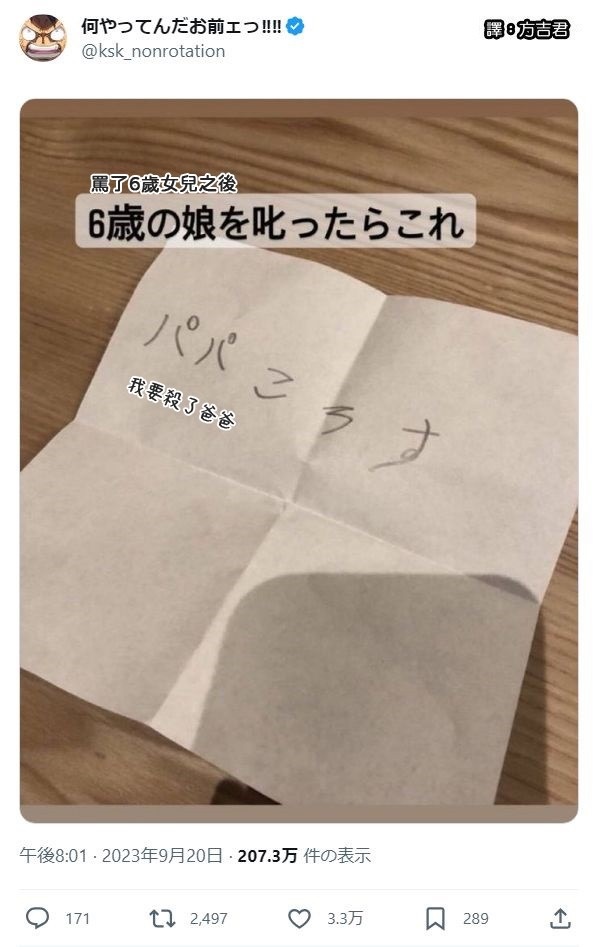 何やってんだお前ェっ!!!!
@ksk_nonrotation
譯●方吉君
罵了6歲女兒之後
6歳の娘を叱ったらこれ
パパころす
我要殺了爸爸
午後8:01 · 2023年9月20日 · 207.3万 件の表示
171 2,497 3.3万 289